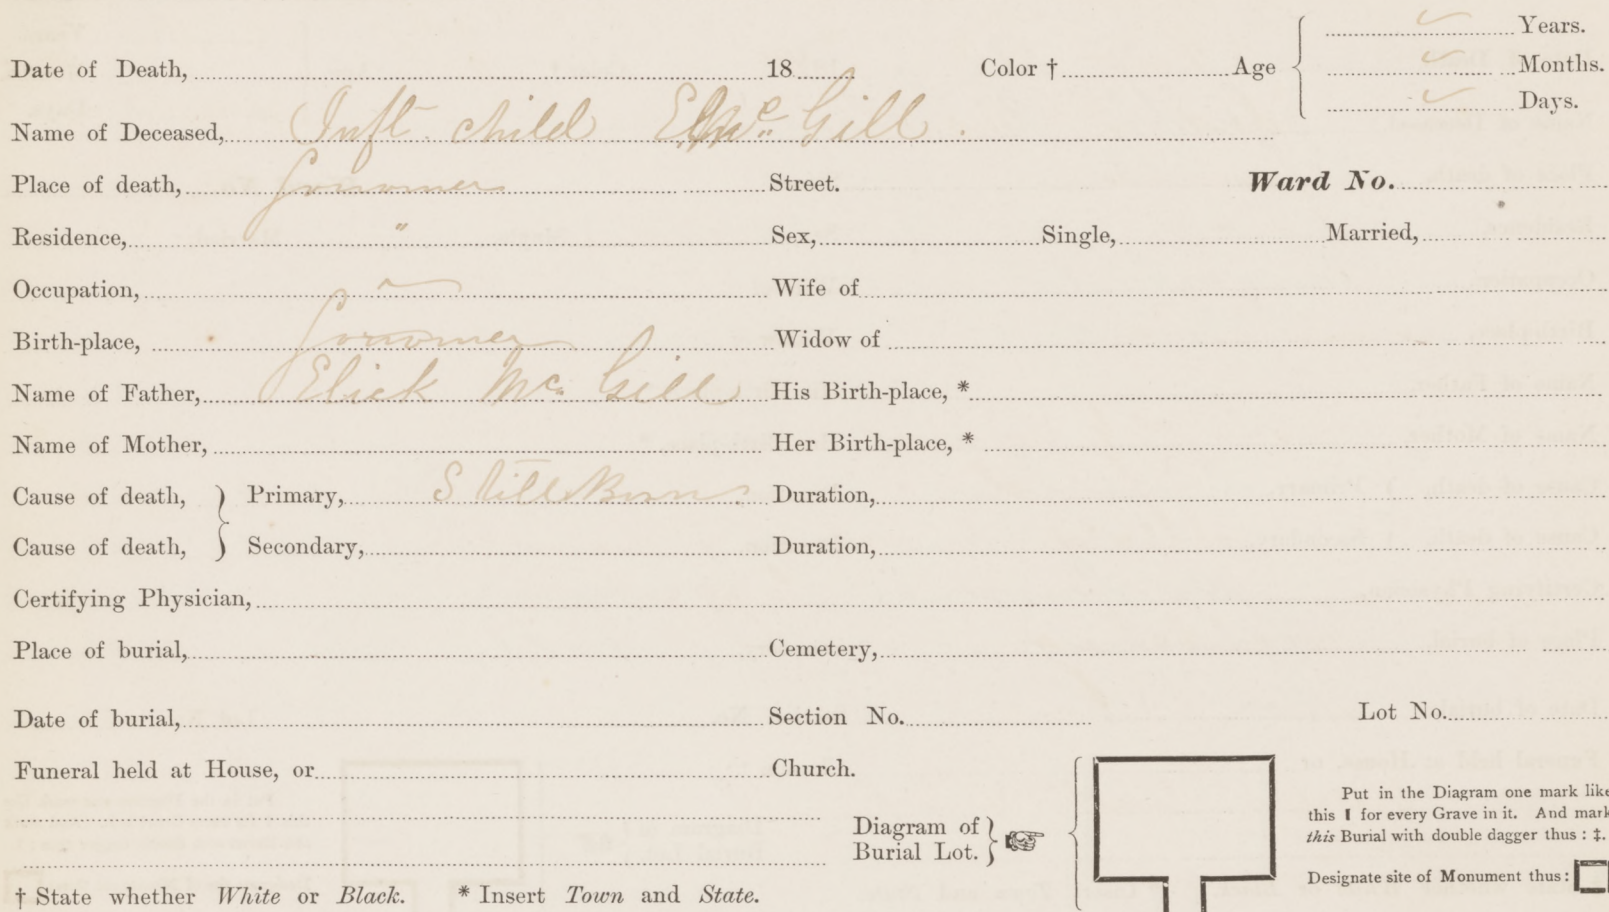 Years.
Date of Death, 18 Color † Age Months.
Days.
Name of Deceased, Inft child E Mc Gill
Place of death, Street. Ward No.
Residence, " Sex, Single, Married,
Occupation, Wife of
Birth-place, Widow of
Name of Father, Elick Mc Gill His Birth-place, *
Name of Mother, Her Birth-place, *
Cause of death, } Primary, Still Born Duration,
Cause of death, } Secondary, Duration,
Certifying Physician,
Place of burial, Cemetery,
Date of burial, Section No. Lot No.
Funeral held at House, or Church.
Put in the Diagram one mark like
Diagram of this I for every Grave in it. And mark
Burial Lot. this Burial with double dagger thus : ‡.
Designate site of Monument thus :
† State whether White or Black. * Insert Town and State.